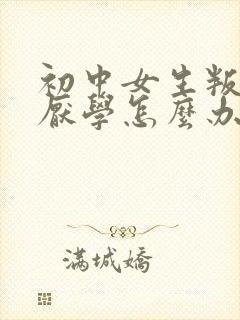 初中女生叛
厭學怎麼办
满城嬌